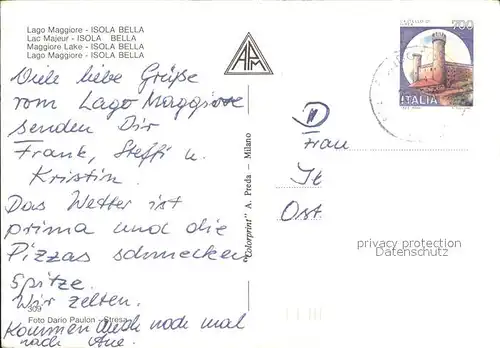 Lago Maggiore - ISOLA BELLA
Lac Majeur - ISOLA BELLA
Maggiore Lake - ISOLA BELLA
Lago Maggiore - ISOLA BELLA
Viele liebe Grüße
vom Lago Maggiore
senden Dir
Frank, Steffi u.
Kristin.
Das Wetter ist
prima und die
Pizzas schmecken
Spitze.
Wir zelten.
Kommen auch noch mal
nach Aue.
309
Foto Dario Paulon - Stresa
"Colorprint" A. Preda - Milano
APM
700
ITALIA
D
Frau
Ost
privacy protection
Datenschutz